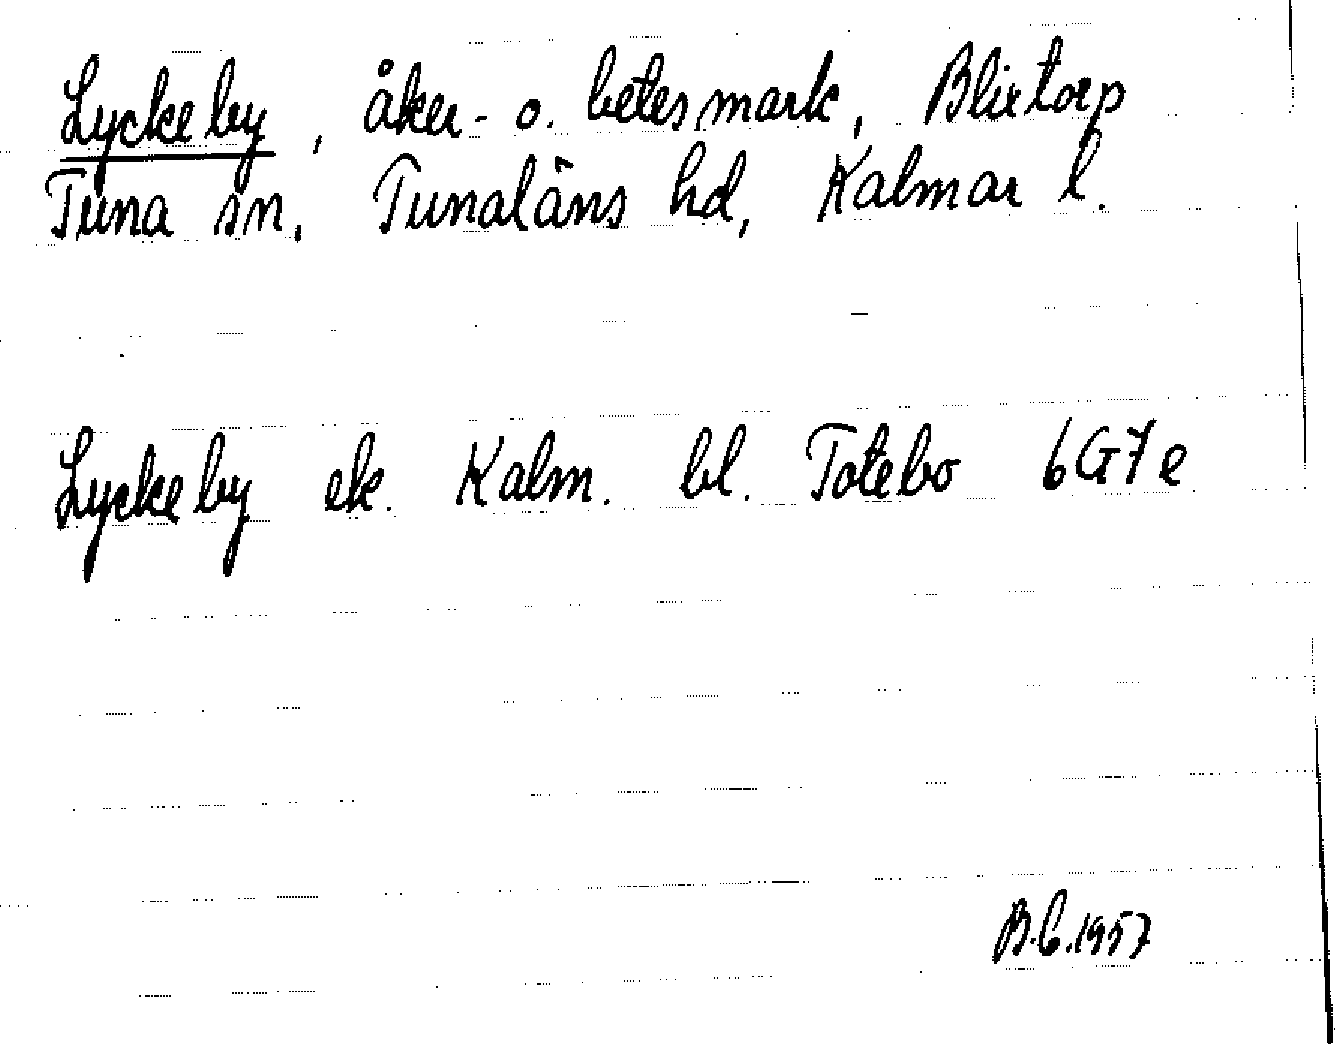 Lyckeby, åker- o. betesmark, Blixtorp
Tuna sn. Tunaläns hd, Kalmar l.
Lyckeby ek. Kalm. bl. Totebo 6G7e
B.C.1957